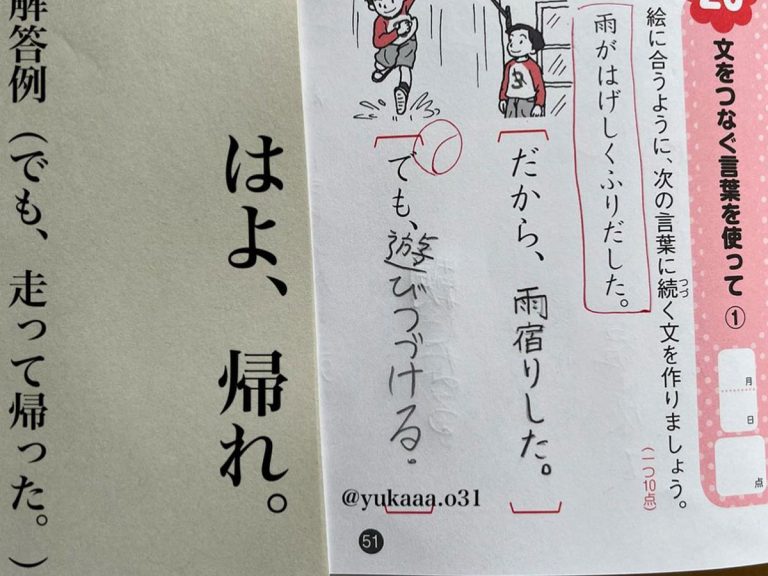 20
文をつなぐ言葉を使って ①
月
日
点
絵に合うように、次の言葉に続く文を作りましょう。
つづ
(一つ10点)
雨がはげしくふりだした。
だから、雨宿りした。
でも、遊びつづける。
@yukaaa.o31
51
はよ、帰れ。
解答例(でも、走って帰った。)